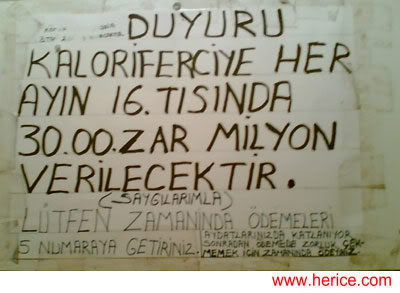 DUYURU
KALORİFERCİYE HER
AYIN 16.TISINDA
30.00.ZAR MİLYON
VERİLECEKTİR.
(-SAYGILARIMLA)
LÜTFEN ZAMANINDA ÖDEMELERİ
5 NUMARAYA GETİRİNİZ.
AYDATLARINIZDA KATLANIYOR
SONRADAN ÖDEMEDE ZORLUK ÇEK-
MEMEK İÇİN ZAMANINDA ÖDEYİNİZ.
www.herice.com